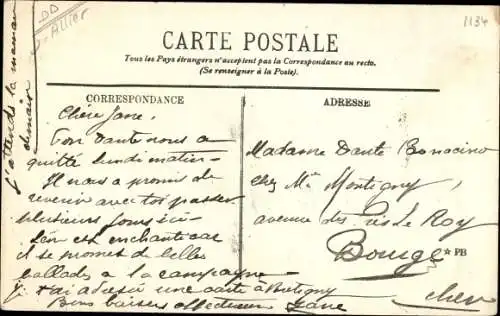 DD
Allier
1134
CARTE POSTALE
Tous les Pays étrangers n'acceptent pas la Correspondance au recto.
(Se renseigner à la Poste).
CORRESPONDANCE
ADRESSE
J'attends la maman
demain
Chère Jane.
Ton Dante nous a
quitté lundi matin
Il nous a promis de
revenir avec toi passer
plusieurs jours ici
est enchanté car
il se promet de belles
ballades à la campagne
j'ai adressé une carte à
Bons baisers affectueux Jane
Madame Dante Bonacino
chez Me Montigny
avenue des Leroy
Bouge
PB
Cher